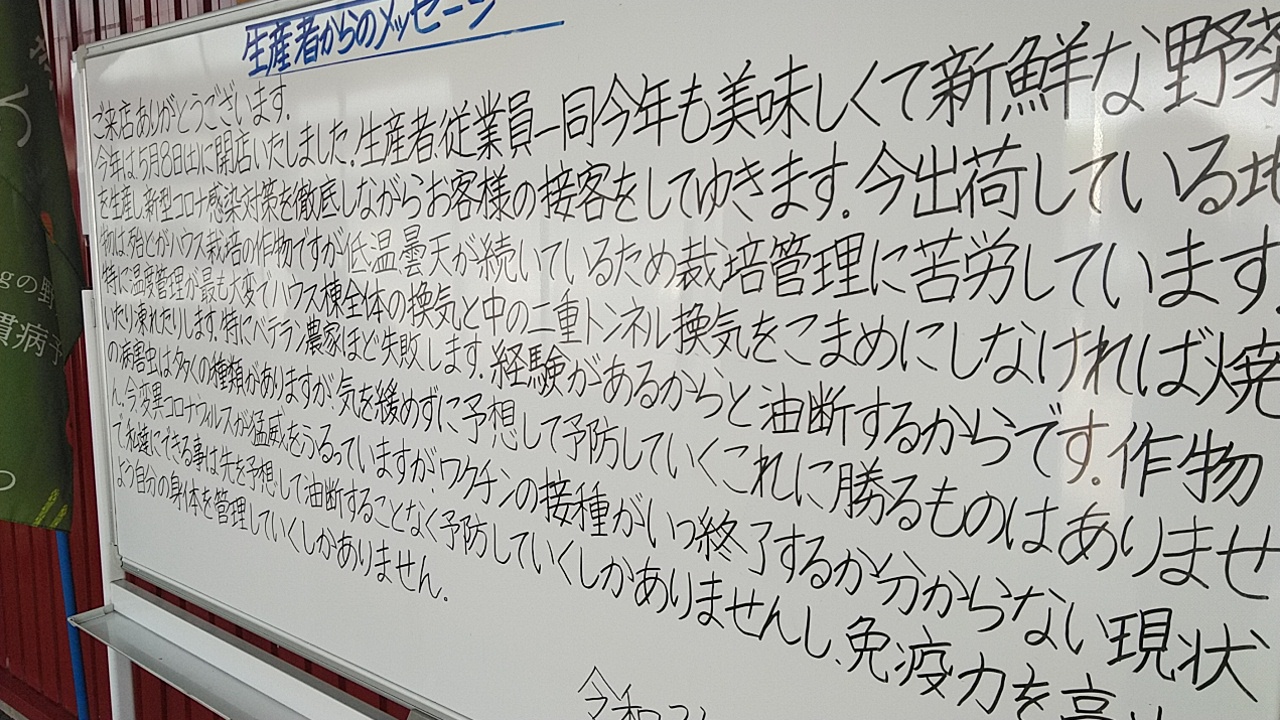 生産者からのメッセージ
ご来店ありがとうございます。
今年は5月8日(土)に開店いたしました。生産者、従業員一同今年も美味しくて新鮮な野菜
を生産し新型コロナ感染対策を徹底しながらお客様の接客をしてゆきます。今出荷している地
物は、殆どがハウス栽培の作物ですが低温、曇天が続いているため栽培管理に苦労しています
特に温度管理が最も大変でハウス棟全体の換気と中の二重トンネル換気をこまめにしなければ焼
いたり凍れたりします。特にベテラン農家ほど失敗します。経験があるからと油断するからです。作物
の病害虫は多くの種類がありますが、気を緩めずに予想して予防していくこれに勝るものはありませ
ん。今、変異コロナウィルスが猛威をうるっていますが、ワクチンの接種がいつ終了するか分からない現状
で私達にできる事は先を予想して油断することなく予防していくしかありませんし、免疫力を高め
よう自分の身体を管理していくしかありません。
令和
gの野
貫病子